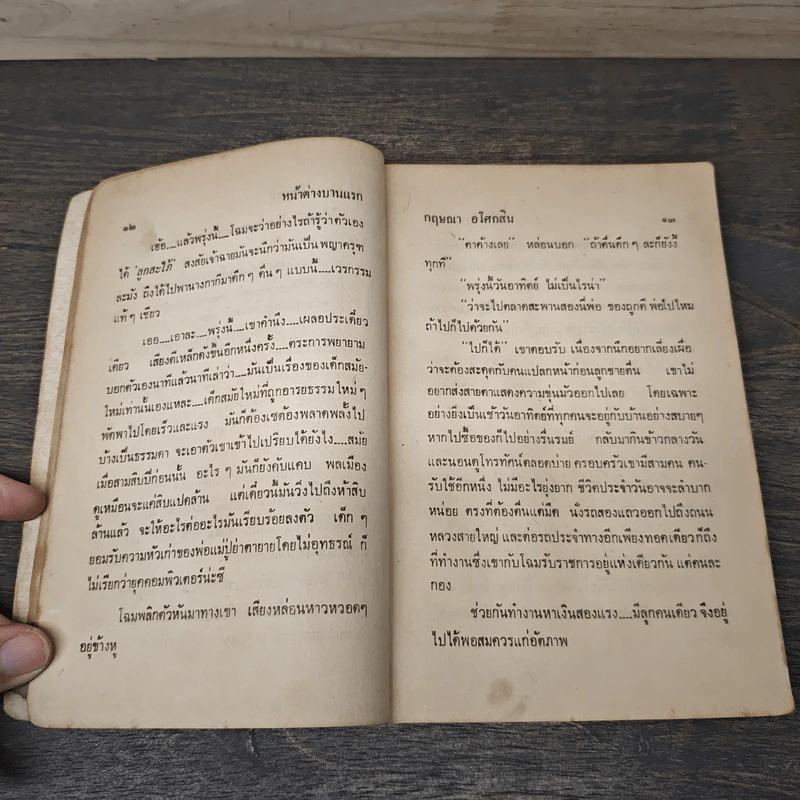 หน้าต่างบานแรก
๑๒
เฮ้อ....แล้วพรุ่งนี้....โฉมจะว่าอย่างไรถ้ารู้ว่าตัวเอง
ได้ 'ลูกสะใภ้' สงสัยเจ้าฉายมันจะนึกว่ามันเป็น พญาครุฑ
ละมัง ถึงได้ไปพานางกากีมาดึกๆ ดื่นๆ แบบนี้....เวรกรรม
แท้ๆ เชียว
เออ....เอาละ....พรุ่งนี้....เขาคำนึง....เผลอประเดี๋ยว
เดียว เสียงตีเหล็กดังขึ้นอีกหนึ่งครั้ง....ตระการพยายาม
บอกตัวเองนาทีแล้วนาทีเล่าว่า....มันเป็นเรื่องของเด็กสมัย-
ใหม่เท่านั้นเองแหละ....เด็กสมัยใหม่ที่ถูกอารยธรรมใหม่ๆ
พัดพาไปโดยเร็วและแรง มันก็ต้องเซต้องพลาดพลั้งไป
บ้างเป็นธรรมดา จะเอาตัวเขาเข้าไปเปรียบได้ยังไง....สมัย
เมื่อสามสิบปีก่อนนั้น อะไรๆ มันก็ยังคับแคบ พลเมือง
ดูเหมือนจะแค่สิบแปดล้าน แต่เดี๋ยวนี้มันวิ่งไปถึงห้าสิบ
ล้านแล้ว จะให้อะไรต่ออะไรมันเรียบร้อยลงตัว เด็กๆ
ยอมรับความหัวเก่าของพ่อแม่ปู่ย่าตายายโดยไม่อุทธรณ์ ก็
ไม่เรียกว่ายุคคอมพิวเตอร์น่ะซี
โฉมพลิกตัวหันมาทางเขา เสียงหล่อนหาวหวอดๆ
อยู่ข้างหู
กฤษณา อโศกสิน
๑๓
"ตาค้างเลย" หล่อนบอก "ถ้าตื่นดึกๆ ละก็ยังงี้
ทุกที"
"พรุ่งนี้วันอาทิตย์ ไม่เป็นไรน่า"
"ว่าจะไปตลาดสะพานสองนี่พ่อ ของถูกดี พ่อไปไหม
ถ้าไปก็ไปด้วยกัน"
"ไปก็ได้" เขาตอบรับ เนื่องจากนึกอยากเลี่ยงเผื่อ
ว่าจะต้องสะดุดกับคนแปลกหน้าก่อนลูกชายตื่น เขาไม่
อยากส่งสายตาแสดงความขุ่นมัวออกไปเลย โดยเฉพาะ
อย่างยิ่งเป็นเช้าวันอาทิตย์ที่ทุกคนจะอยู่กับบ้านอย่างสบายๆ
หากไปซื้อของก็ไปอย่างรื่นรมย์ กลับมากินข้าวกลางวัน
และนอนดูโทรทัศน์ตลอดบ่าย ครอบครัวเขามีสามคน คน-
รับใช้อีกหนึ่ง ไม่มีอะไรยุ่งยาก ชีวิตประจำวันอาจจะลำบาก
หน่อย ตรงที่ต้องตื่นแต่มืด นั่งรถสองแถวออกไปถึงถนน
หลวงสายใหญ่ และต่อรถประจำทางอีกเพียงทอดเดียวก็ถึง
ที่ทำงานซึ่งเขากับโฉมรับราชการอยู่แห่งเดียวกัน แต่คนละ
กอง
ช่วยกันทำงานหาเงินสองแรง....มีลูกคนเดียว จึงอยู่
ไปได้พอสมควรแก่อัตภาพ